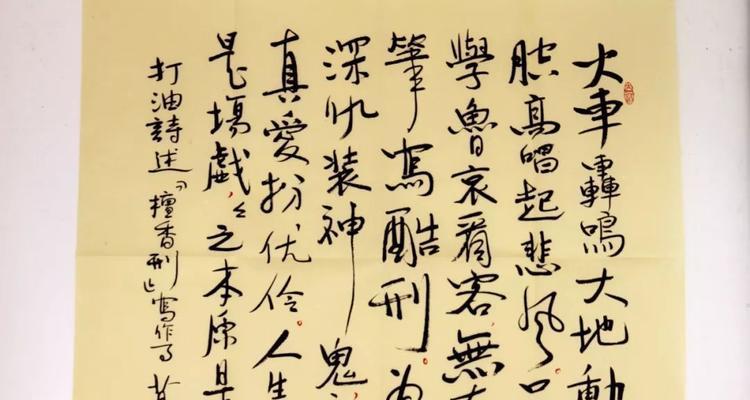 火车轰鸣大地動
腔高唱起悲风口
學魯哀看客無
筆寫酷刑为
深仇装神鬼
真愛扮优伶人生
是場戲々之本原是
打油詩述「檀香刑」寫作了